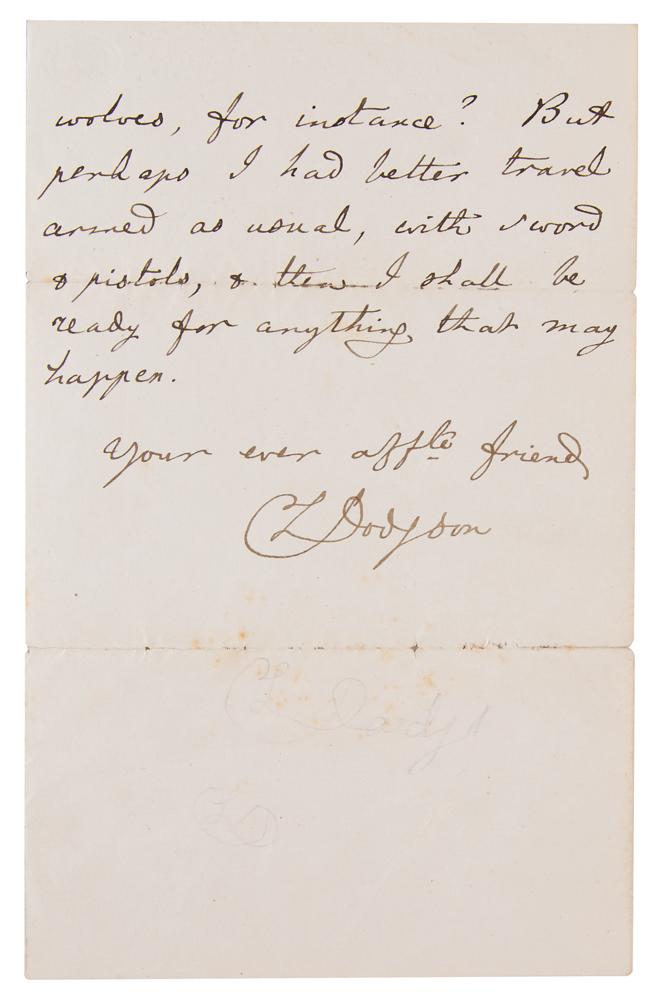 wolves, for instance? But
perhaps I had better travel
armed as usual, with sword
& pistols, & then I shall be
ready for anything that may
happen.
Your ever affte friend
CL Dodgson
CL Dodgs
CLD